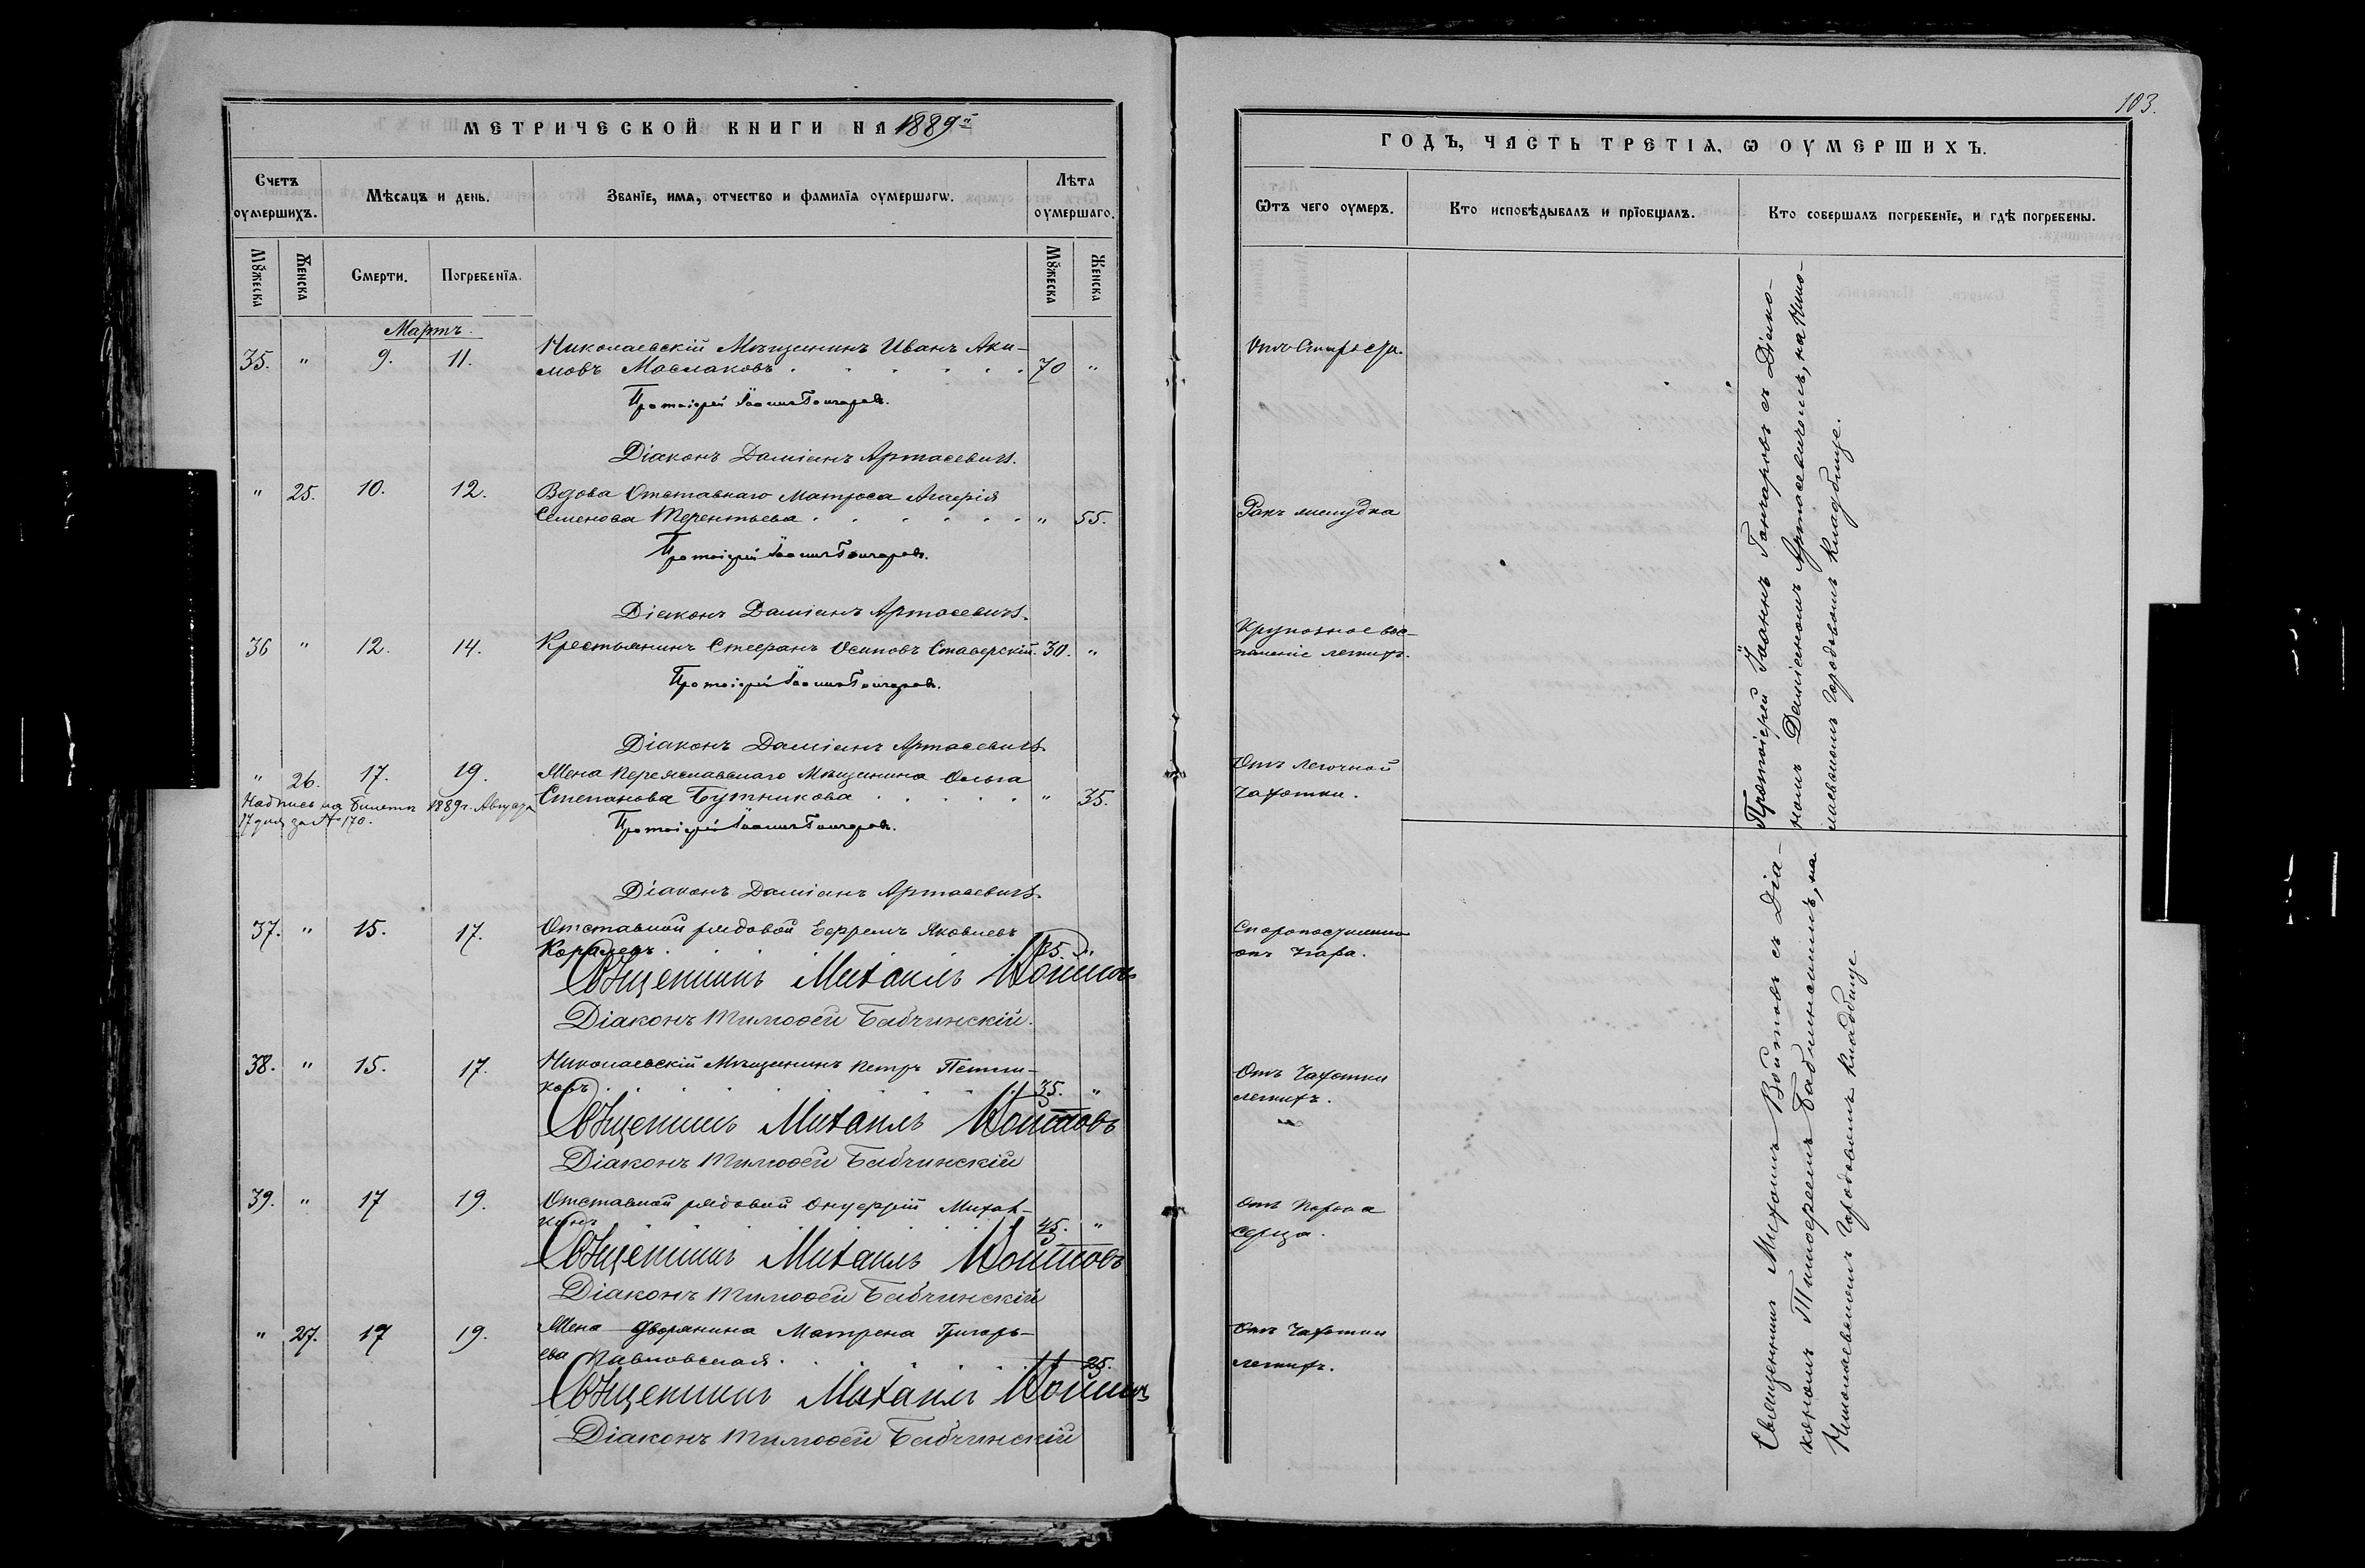 МЕТРИЧЕСКОЙ КНИГИ НА 1889й
Счетъ оумершихъ.
Мѣсяцъ и день.
Званїе, имѧ, отчество и фамилїа оумершагѡ.
Лѣта оумершаго.
Мꙋжеска
Женска
Смерти.
Погребенїѧ.
Мꙋжеска
Женска
Мартъ.
35. " 9. 11. Николаевскій Мѣщанинъ Иванъ Аки-
мовъ Маслаковъ . . . . . . 70 "
Протоіерей Іоаннъ Гончаровъ.
Діаконъ Даміанъ Артасевичъ.
" 25. 10. 12. Вдова Отставнаго Матроса
Семенова Терентьева . . . . . . " 55.
Протоіерей Іоаннъ Гончаровъ.
Діаконъ Даміанъ Артасевичъ.
36 " 12. 14. Крестьянинъ Стефанъ Осиповъ Ставерскій. 30. "
Протоіерей Іоаннъ Гончаровъ.
Діаконъ Даміанъ Артасевичъ.
" 26. 17. 19. Жена Переяславскаго Мѣщанина Ольга
Степанова Бутникова . . . . . " 35.
Надпись на билетѣ 1889 г. Августа
17 дня за № 170.
Протоіерей Іоаннъ Гончаровъ.
Діаконъ Даміанъ Артасевичъ.
37. " 15. 17. Отставной рядовой Ефремъ Яковлевъ
35. "
Священникъ Михаилъ Войтовъ
Діаконъ Тимоѳей Бабчинскій.
38. " 15. 17. Николаевскій Мѣщанинъ Петръ
ковъ . . . . . 35. "
Священникъ Михаилъ Войтовъ
Діаконъ Тимоѳей Бабчинскій
39. " 17 19. Отставной рядовой Онуфрій
45. "
Священникъ Михаилъ Войтовъ
Діаконъ Тимоѳей Бабчинскій
" 27. 17 19. Жена дворянина Матрена Григорь-
ева Павловская . . . . . 25.
Священникъ Михаилъ Войтовъ
Діаконъ Тимоѳей Бабчинскій
103.
ГОДЪ, ЧАСТЬ ТРЕТІѦ, Ѡ ОУМЕРШИХЪ.
Ѿтъ чего оумеръ.
Кто исповѣдывалъ и прїобщалъ.
Кто совершалъ погребенїе, и гдѣ погребены.
Отъ Старости.
Ракъ желудка
Крупозное вос-
паленіе легкихъ.
Отъ легочной
Чахотки.
Скоропостижно
отъ
Отъ Чахотки
легкихъ.
Отъ Порока
Сердца.
Отъ Чахотки
легкихъ.
Протоіерей Іоаннъ Гончаровъ съ Діако-
номъ Даміаномъ Артасевичемъ, на Нико-
лаевскомъ Городовомъ Кладбище.
Священникъ Михаилъ Войтовъ съ Діа-
кономъ Тимофеемъ Бабчинскимъ, на
Николаевскомъ Городовомъ Кладбище